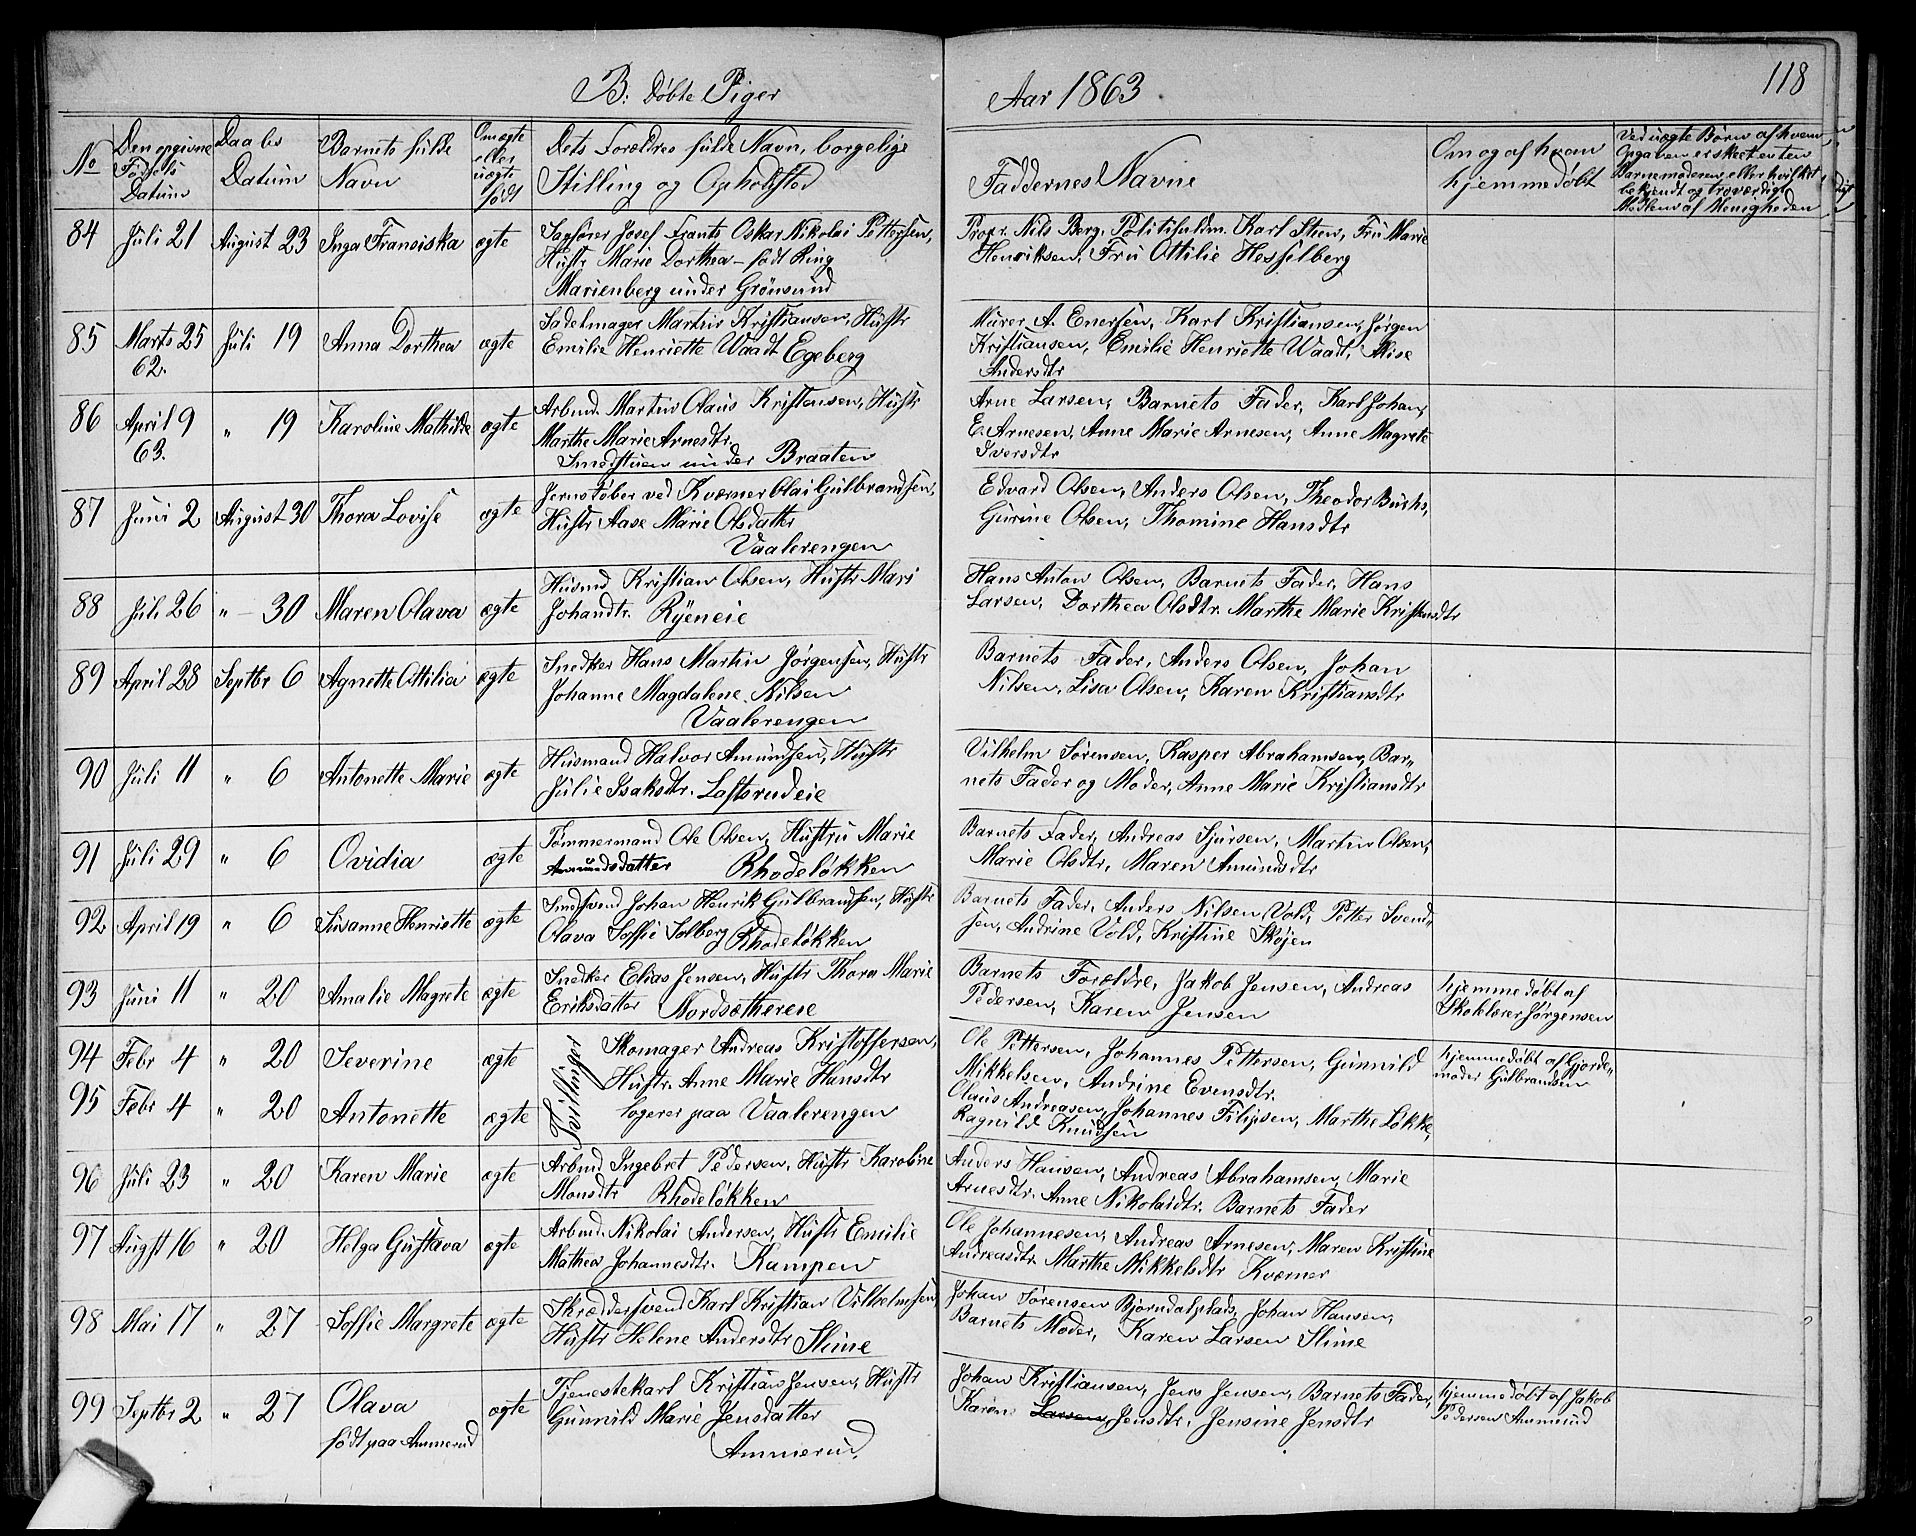 B. Døbte Piger
Aar 1863.
118
No
Den opgivne Fødsels Datum
Daabs Datum
Barnets fulde Navn
Om ægte eller uægte født
Dets Forældres fulde Navn, borgelige Stilling og Opholdsted
Faddernes Navne
Om og af hvem hjemmedøbt
Ved uægte Børn af hvem Opgaven er skeet enten Barnemoderen eller hvilket bekjendt og troværdigt Medlem af Menigheden
84 Juli 21 August 23 Inga Fransiska ægte Sagfører Josef Frants Oskar Nikolai Pettersen,
Hustr Marie Dorthea – født Ring
Marienberg under Grönsund
Propr. Nils Berg, Politifuldm. Karl Steen, Fru Marie
Henriksen, Fru Ottilie Hesselberg
85 Marts 25 62. Juli 19 Anna Dorthea ægte Sadelmager Martin Kristiansen, Hustr
Emilie Henriette Waadt Egeberg
Murer A. Enersen, Karl Kristiansen, Jørgen
Kristiansen, Emilie Henriette Waadt, Alise
Andersdtr
86 April 9 63. " 19 Karoline Mathilde ægte Arbmd. Martin Olaus Kristensen, Hustr
Marthe Marie Arnesdtr.
Smedstuen under Braaten
Arne Larsen, Barnets Fader, Karl Johan,
E. Arnesen, Anne Marie Arnesen, Anne Magrete
Iversdtr
87 Juni 2 August 30 Thora Lovise ægte Jernstøber ved Kværner Olai Gulbrandsen,
Hustr Aase Marie Olsdatter
Vaalerengen
Edvard Olsen, Anders Olsen, Theodor Buchs,
Gurine Olsen, Thomine Hansdtr
88 Juli 26 " – 30 Maren Olava ægte Husmd Kristian Olsen, Hustr Mari
Johandtr. Ryeneie
Hans Anton Olsen, Barnets Fader, Hans
Larsen, Dorthea Olsdtr. Marthe Marie Kristensdtr
89 April 28 Septbr 6 Agnette Ottilia ægte Snedker Hans Martin Jørgensen, Hustr
Johanne Magdalene Nilsen
Vaalerengen
Barnets Fader, Anders Olsen, Johan
Nilsen, Lisa Olsen, Karen Kristiansdtr
90 Juli 11 " 6 Antonette Marie ægte Husmand Halvor Amundsen, Hustr
Julie Isaksdtr. Loftsrudeie
Vilhelm Sørensen, Kasper Abrahamsen, Bar-
nets Fader og Moder, Anne Marie Kristiansdtr
91 Juli 29 " 6 Ovidia ægte Tømmermand Ole Olsen, Hustru Marie
Amundsdatter Rhodeløkken
Barnets Fader, Andreas Sjursen, Martin Olsen,
Marie Olsdtr, Maren Amundsdtr
92 April 19 " 6 Susanne Henriette ægte Smedsvend Johan Henrik Gulbrandsen, Hustr
Olava Soffie Solberg Rhodeløkken
Barnets Fader, Anders Nilsen Vold, Petter Svend-
sen, Andrine Vold, Kristine Skøjen
93 Juni 11 " 20 Amalie Magrete ægte Snedker Elias Jensen, Hustr Thora Marie
Eriksdatter Nordsethereie
Barnets Forældre, Jakob Jensen, Andreas
Pedersen, Karen Jensen
hjemmedøbt af
Skolelærer Jørgensen
94 Febr 4 " 20 Severine ægte
95 Febr 4 " 20 Antonette ægte
Tvillinger
Skomager Andreas Kristoffersen,
Hustr. Anne Marie Hansdtr
logerer paa Vaalerengen
Ole Pettersen, Johannes Pettersen, Gunnild
Mikkelsen, Andrine Evensdtr.
Olaus Andreasen, Johannes Filipsen, Marthe Løkke,
Ragnild Knudsen
hjemmedøbt af Gjorde-
moder Gulbrandsen
96 Juli 23 " 20 Karen Marie ægte Arbmd Ingebret Pedersen, Hustr Karoline
Monsdtr Rhodeløkken
Anders Hansen, Andreas Abrahamsen, Marie
Arnesdtr. Anne Nikolaidtr. Barnets Fader
97 Augst 16 " 20 Helga Gustava ægte Arbmd. Nikolai Andersen, Hustr Emilie
Mathea Johannesdtr. Kampen
Ole Johannesen, Andreas Arnesen, Maren Kristine
Andreasdtr. Marthe Mikkelsdtr Kværner
98 Mai 17 " 27 Soffie Margrete ægte Skræddersvend Karl Kristian Vilhelmsen,
Hustr Helene Andersdtr Slime
Johan Sørensen Bjørndalplads, Johan Hansen,
Barnets Moder, Karen Larsen Slime
99 Septbr 2 " 27 Olava født paa Ammerud ægte Tjenestekarl Kristian Jensen, Hustr
Gunnild Marie Jensdatter
Ammerud,
Johan Kristiansen, Jens Jensen, Barnets Fader,
Karen Larsen, Jensdtr, Jensine Jensdtr
hjemmedøbt af Jakob
Pedersen Ammerud